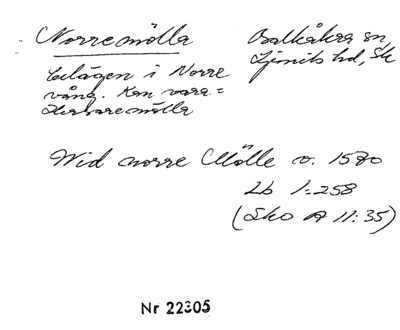 Norremölla
Balkåkra sn,
Ljunits hd, Sk
belägen i Norre
vång. Kan vara =
Herbaremölla
Wid norre Mölle o. 1570
Lb 1:258
(Sko A 11:35)
Nr 22305